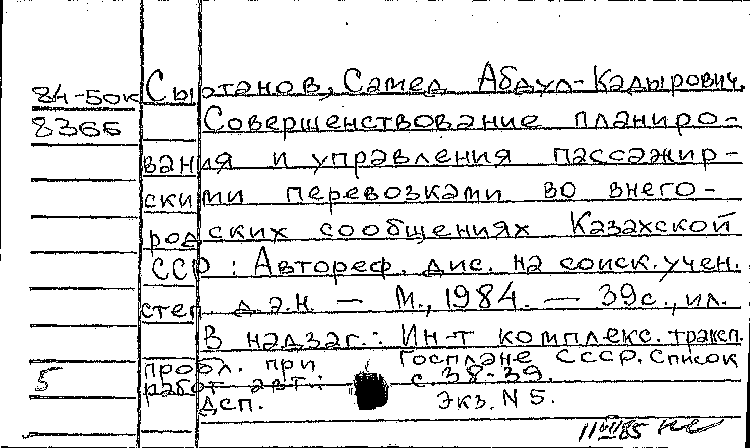 84-5ок Сы танов, Самед Абдул-Кадырович.
8366 Совершенствование планиро-
вания и управления пассажир-
скими перевозками во внего-
родских сообщениях Казахской
ССР : Автореф. дис. на соиск. учен.
степ д.э.н. — М., 1984. — 39с., ил.
В надзаг.: Ин-т комплекс. трансп.
пробл. при Госплане СССР. Список
5 работ авт.: с 38-39.
ДСП. Экз. N 5.